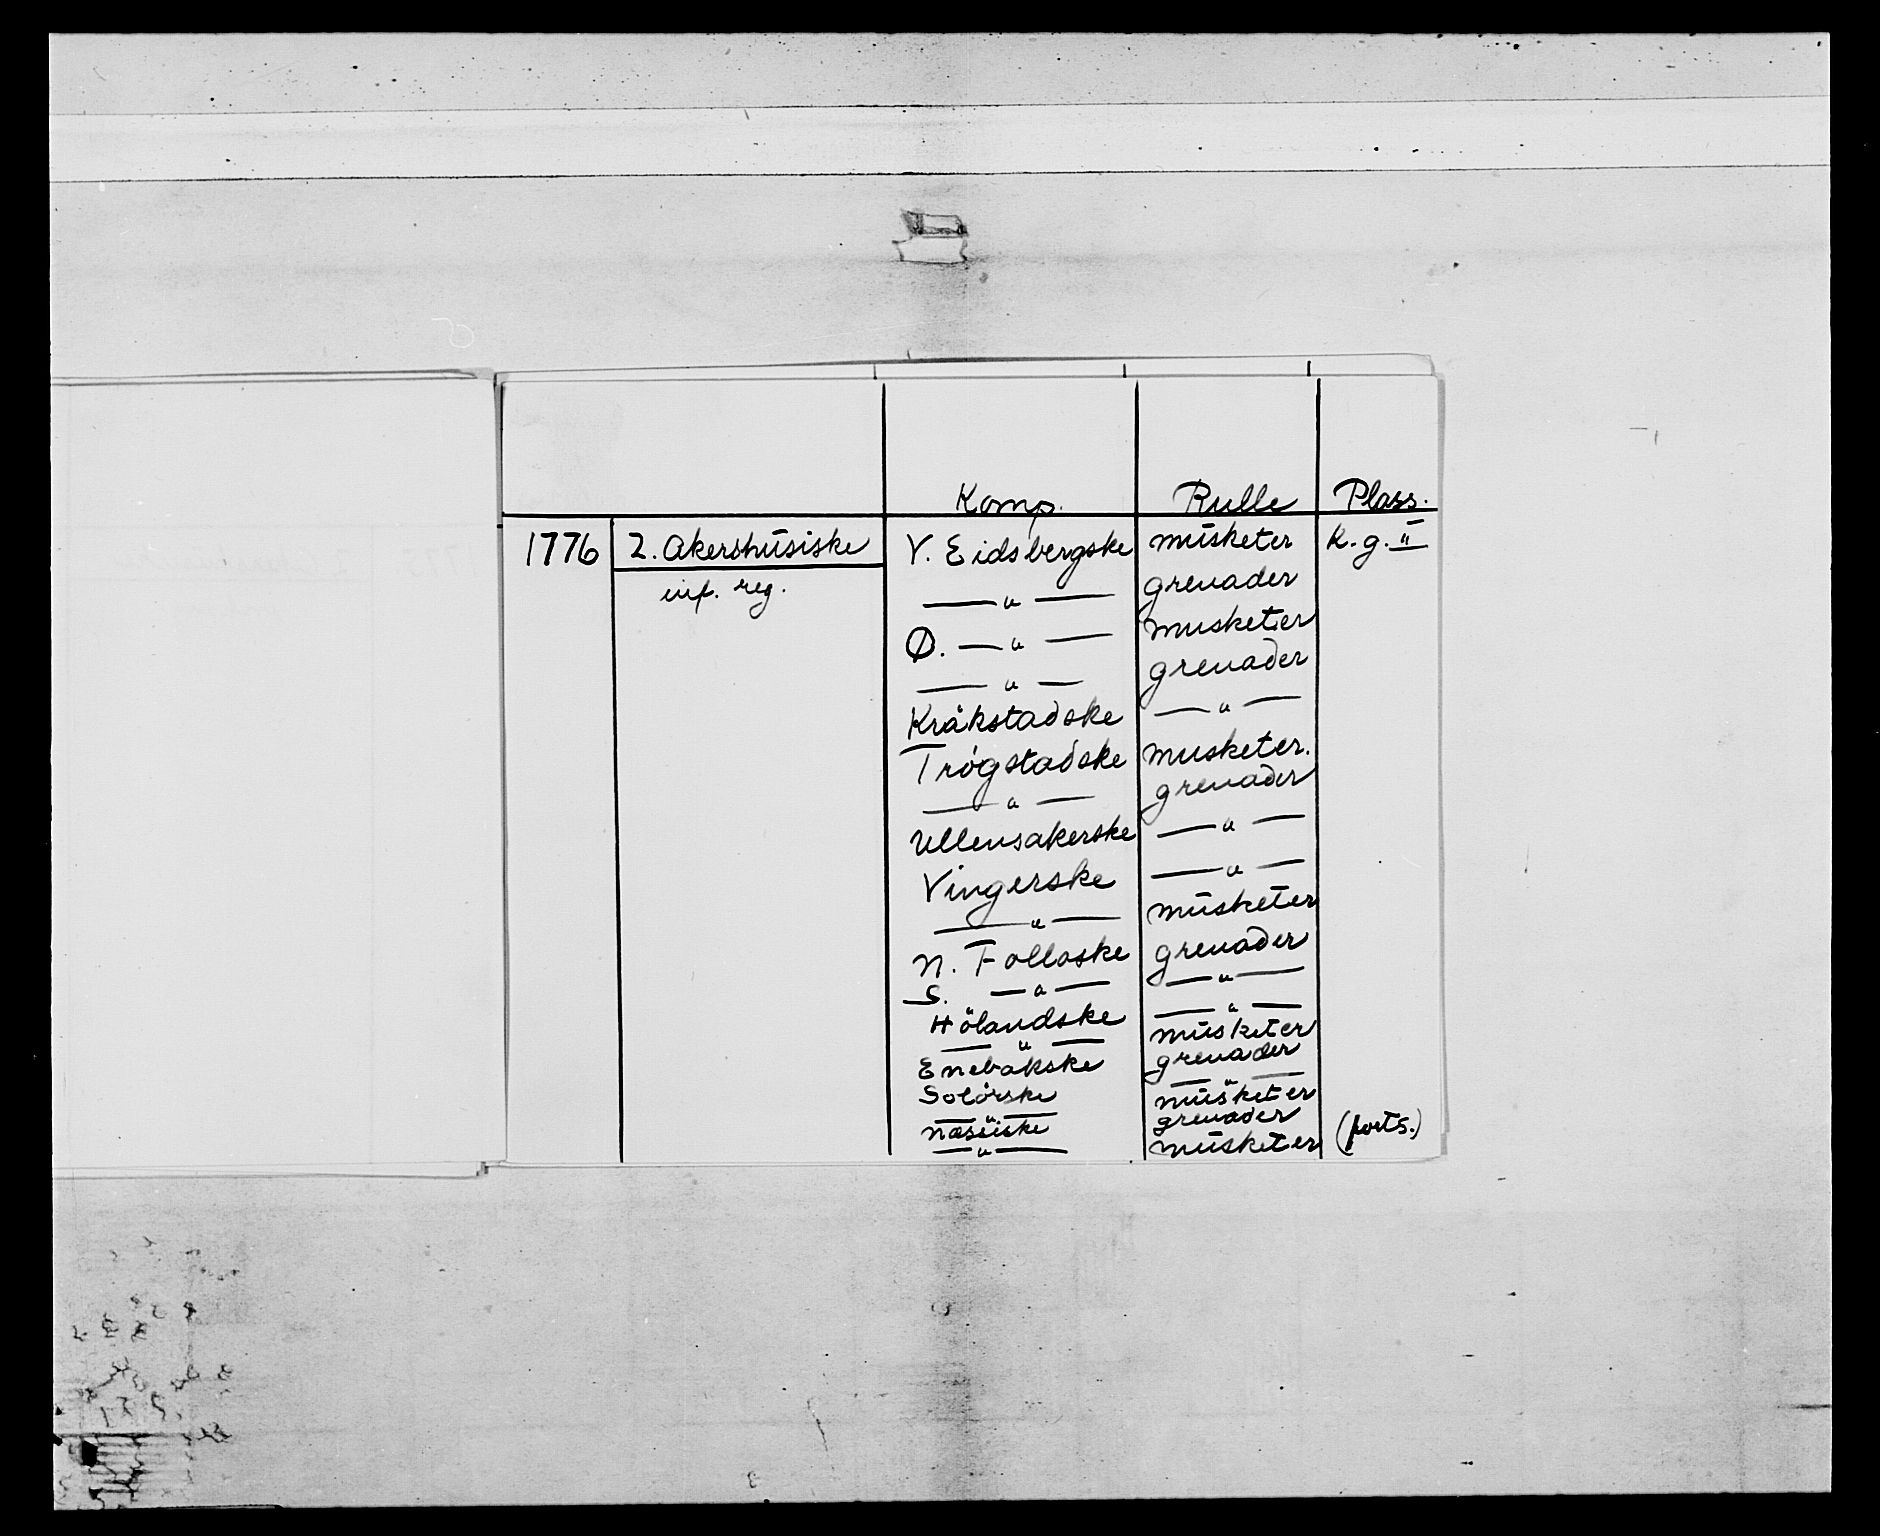 Komp. Rulle Plass.
1776 2. Akershusiske V. Eidsbergske musketer K. g. II
inf. reg. — " — grenader
Ø. — " — musketer
— " — grenader
Kråkstadske — " —
Trøgstadske musketer.
— " — grenader
Ullensakerske — " —
Vingerske — " —
— " — musketer
N. Folloske grenader
S. — " — — " —
Hölandske — " —
— " — musketer
Enebakske grenader
Solørske — " —
— " — musketer
Næsiske grenader
— " — musketer (forts.)